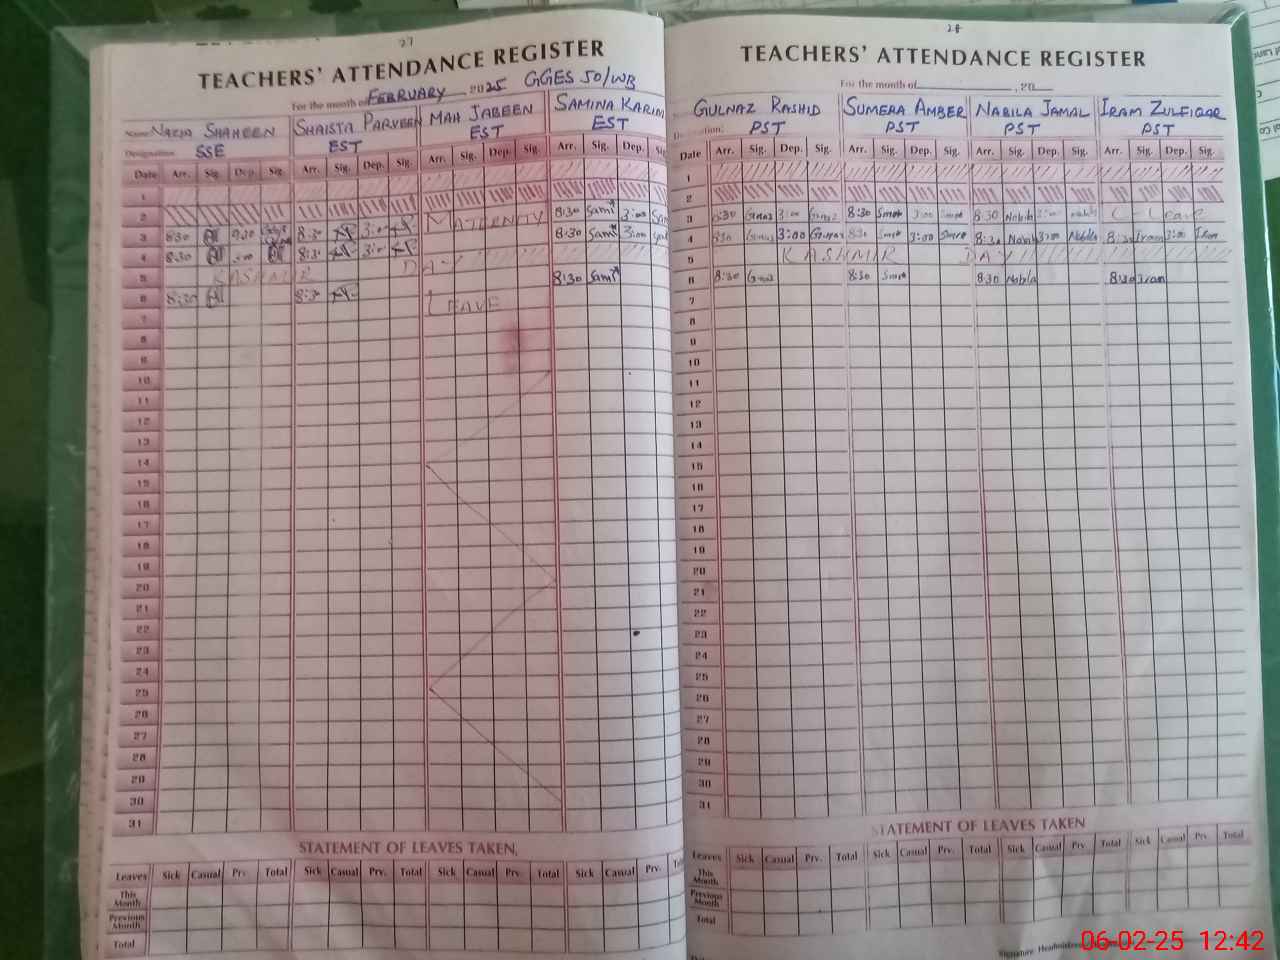 27
TEACHERS' ATTENDANCE REGISTER
For the month of FEBRUARY 2025 GGES 50/WB
Name NAZIA SHAHEEN SHAISTA PARVEEN MAH JABEEN SAMINA KARIM
Designation SSE EST EST EST
Date Arr. Sig. Dep. Sig. Arr. Sig. Dep. Sig. Arr. Sig. Dep. Sig. Arr. Sig. Dep. Sig.
1
2
3 8:30 8:30 3:00 MATERNITY 8:30 Sami 3:00
4 8:30 8:30 3:00 8:30 Sami 3:00
5 KASHMIR DAY
6 8:30 8:30 LEAVE 8:30 Sami
7
8
9
10
11
12
13
14
15
16
17
18
19
20
21
22
23
24
25
26
27
28
29
30
31
STATEMENT OF LEAVES TAKEN
Leaves Sick Casual Prv. Total Sick Casual Prv. Total Sick Casual Prv. Total Sick Casual Prv. Total
This Month
Previous Month
Total
28
TEACHERS' ATTENDANCE REGISTER
For the month of , 20
GULNAZ RASHID SUMERA AMBER NABILA JAMAL IRAM ZULFIQAR
PST PST PST PST
Date Arr. Sig. Dep. Sig. Arr. Sig. Dep. Sig. Arr. Sig. Dep. Sig. Arr. Sig. Dep. Sig.
1
2
3 8:30 3:00 8:30 3:00 8:30 Nabila 3:00 Nabila C-Leave
4 8:30 3:00 8:30 3:00 8:30 Nabila 3:00 Nabila 8:30 Iram 3:00 Iram
5 KASHMIR DAY
6 8:30 8:30 8:30 Nabila 8:30 Iram
7
8
9
10
11
12
13
14
15
16
17
18
19
20
21
22
23
24
25
26
27
28
29
30
31
STATEMENT OF LEAVES TAKEN
Leaves Sick Casual Prv. Total Sick Casual Prv. Total Sick Casual Prv. Total Sick Casual Prv. Total
This Month
Previous Month
Total
Signature
06-02-25 12:42